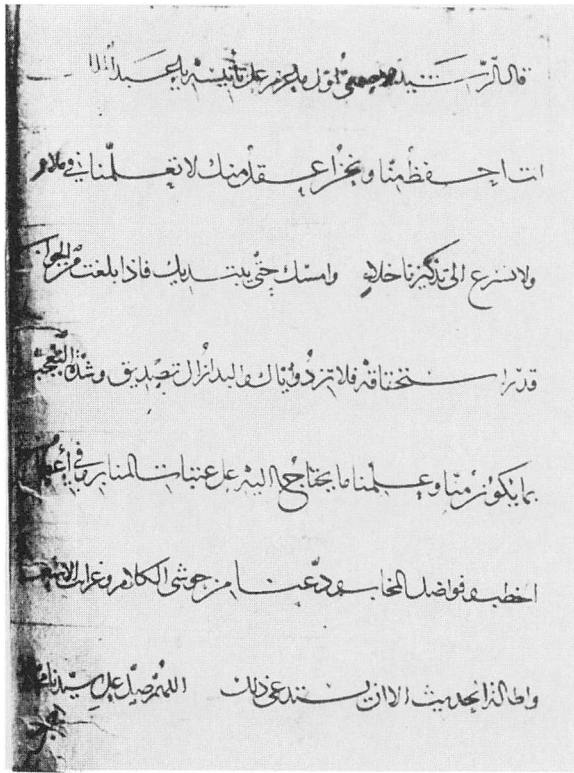 قال الرشيد للاصمعي اول ما عزم على تأنيسه يا عبد الملك
انت احفظ منا ونحن اعقل منك لا تعلمنا في ملاء
ولا تسرع الى تذكيرنا خلاء وامسك حتى نبتديك فاذا بلغت من الجواب
قدر استحقاقه فلا تزد واياك والبدار الى تصديق وشدة التعجب
بما يكون منا وعلمنا ما يحتاج اليه على عتبات المنابر وفي
الخطب وفواضل المخاطبات ودعنا من حوشي الكلام وغرائب الاشعار
واطالة الحديث الا ان نستدعي ذلك اللهم صل على سيدنا محمد